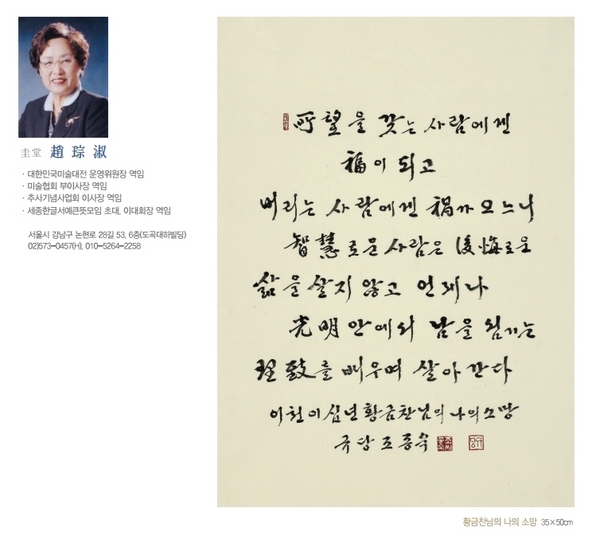 圭堂 趙琮淑
· 대한민국미술대전 운영위원장 역임
· 미술협회 부이사장 역임
· 추사기념사업회 이사장 역임
· 세종한글서예큰뜻모임 초대, 이대회장 역임
서울시 강남구 논현로 28길 53, 6층(도곡대하빌딩)
02)573-0457(H), 010-5264-2258
所望을 갖는 사람에겐
福이 되고
버리는 사람에겐 禍가 오느니
智慧로운 사람은 後悔로운
삶을 살지 않고 언제나
光明 안에와 남을 섬기는
理致를 배우며 살아간다
이천이십년 황금찬님의 나의 소망
규당 조종숙
황금찬님의 나의 소망 35×50cm